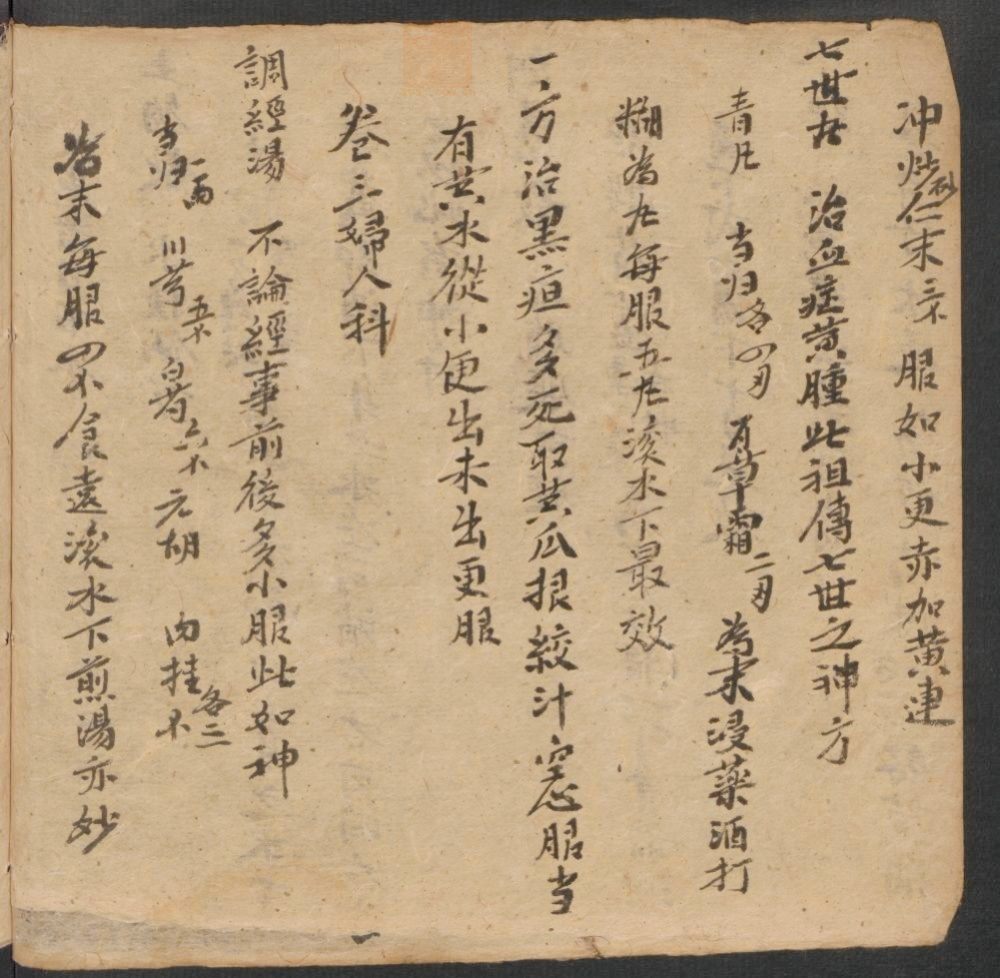 冲燃砂仁末三不 服如小更赤加黄連
七世九 治血症黄腫此祖傳七世之神方
青凡 当归各四刄 百草霜二刄 為末浸藥酒打
糊為九每服五九滚水下最效
一方治黑疸多死取黄瓜根絞汁空心服当
有黄水從小便出未出更服
卷三婦人科
調經湯 不論經事前後多小服此如神
当归一両 川芎五不 白芍六不 元胡 肉挂各三不
為末每服四不食遠滚水下煎湯亦妙